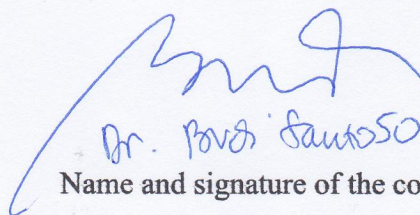 Dr. Budi Santoso
Name and signature of the co